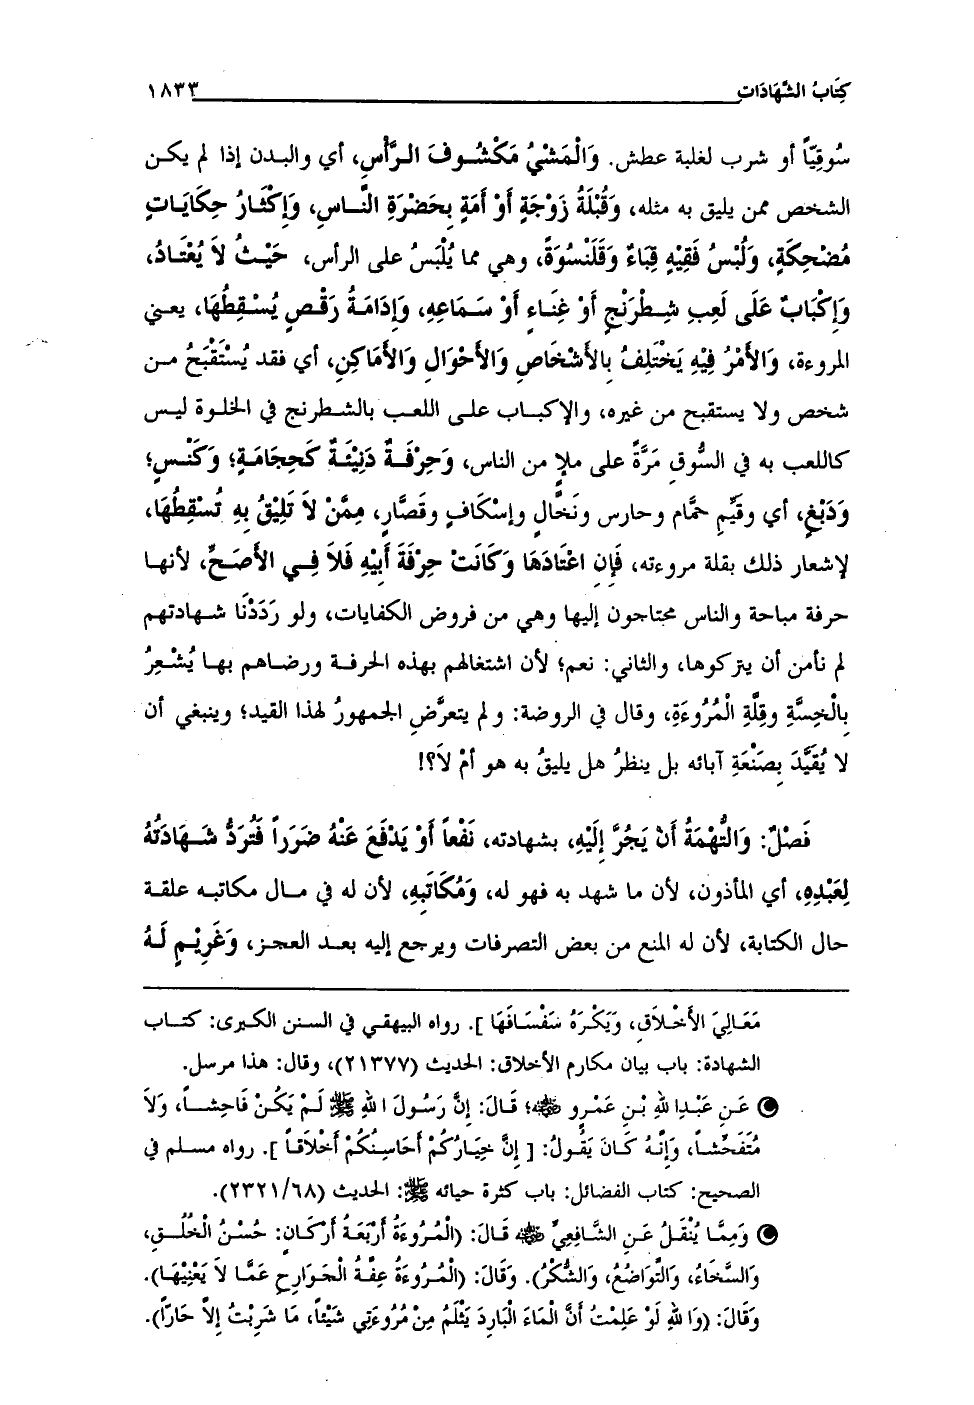 كِتَابُ الشَّهَادَاتِ ١٨٣٣
سُوقِيّاً أو شرب لغلبة عطش. وَالْمَشْيُ مَكْشُوفَ الرَّأْسِ، أي والبدن إذا لم يكن
الشخص ممن يليق به مثله، وَقُبْلَةُ زَوْجَةٍ أَوْ أَمَةٍ بِحَضْرَةِ النَّاسِ، وَإِكْثَارُ حِكَايَاتٍ
مُضْحِكَةٍ، وَلُبْسُ فَقِيْهٍ قِبَاءً وَقَلَنْسُوَةً، وهي مما يُلْبَسُ على الرأس، حَيْثُ لاَ يُعْتَادُ،
وَإِكْبَابٌ عَلَى لَعِبِ شِطْرَنْجٍ أَوْ غِنَاءٍ أَوْ سَمَاعِهِ، وَإِدَامَةُ رَقْصٍ يُسْقِطُهَا، يعني
المروءة، وَالأَمْرُ فِيْهِ يَخْتَلِفُ بِالأَشْخَاصِ وَالأَحْوَالِ وَالأَمَاكِنِ، أي فقد يُسْتَقْبَحُ من
شخص ولا يستقبح من غيره، والإكباب على اللعب بالشطرنج في الخلوة ليس
كاللعب به في السُّوقِ مَرَّةً على ملإٍ من الناس، وَحِرْفَةٌ دَنِيْئَةٌ كَحِجَامَةٍ؛ وَكَنْسٍ؛
وَدَبْغٍ، أي وقَيِّمِ حمَّام وحارس ونَخَّالٍ وإسْكَافٍ وقَصَّارٍ، مِمَّنْ لاَ تَلِيْقُ بِهِ تُسْقِطُهَا،
لإشعار ذلك بقلة مروءته، فَإِنِ اعْتَادَهَا وَكَانَتْ حِرْفَةَ أَبِيْهِ فَلاَ فِي الأَصَحِّ، لأنها
حرفة مباحة والناس محتاجون إليها وهي من فروض الكفايات، ولو رَدَدْنَا شهادتهم
لم نأمن أن يتركوها، والثاني: نعم؛ لأن اشتغالهم بهذه الحرفة ورضاهم بها يُشْعِرُ
بِالْخِسَّةِ وقِلَّةِ الْمُرُوءَةِ، وقال في الروضة: ولم يتعرَّضِ الجمهورُ لهذا القيد؛ وينبغي أن
لا يُقَيَّدَ بِصَنْعَةِ آبائه بل ينظرُ هل يليقُ به هو أمْ لاَ؟!
فَصْلٌ: وَالتُّهْمَةُ أَنْ يَجُرَّ إِلَيْهِ، بشهادته، نَفْعاً أَوْ يَدْفَعَ عَنْهُ ضَرَراً فَتُرَدُّ شَهَادَتُهُ
لِعَبْدِهِ، أي المأذون، لأن ما شهد به فهو له، وَمُكَاتَبِهِ، لأن له في مال مكاتبه علقة
حال الكتابة، لأن له المنع من بعض التصرفات ويرجع إليه بعد العجز، وَغَرِيْمٍ لَهُ
مَعَالِيَ الأَخْلاَقِ، وَيَكْرَهُ سَفْسَافَهَا ]. رواه البيهقي في السنن الكبرى: كتاب
الشهادة: باب بيان مكارم الأخلاق: الحديث (٢١٣٧٧)، وقال: هذا مرسل.
عَن عَبْدِاللهِ بْنِ عَمْرٍو ﵁؛ قَالَ: إِنَّ رَسُولَ اللهِ ﷺ لَمْ يَكُنْ فَاحِشاً، وَلاَ
مُتَفَحِّشاً، وَإِنَّهُ كَانَ يَقُولُ: [ إِنَّ خِيَارُكُمْ أَحَاسِنُكُمْ أَخْلاَقاً ]. رواه مسلم في
الصحيح: كتاب الفضائل: باب كثرة حيائه ﷺ: الحديث (٢٣٢١/٦٨).
وَمِمَّا يُنْقَلُ عَنِ الشَّافِعِيِّ ﵁ قَالَ: (الْمُرُوءَةُ أَرْبَعَةُ أَرْكَانٍ: حُسْنُ الْخُلُقِ،
وَالسَّخَاءُ، وَالتَّوَاضُعُ، وَالشُّكْرُ). وَقَالَ: (الْمُرُوءَةُ عِفَّةُ الْجَوَارِحِ عَمَّا لاَ يَعْنِيْهَا).
وَقَالَ: (وَاللهِ لَوْ عَلِمْتُ أَنَّ الْمَاءَ الْبَارِدَ يَثْلَمُ مِنْ مُرُوءَتِي شَيْئاً، مَا شَرِبْتُ إِلاَّ حَارّاً).